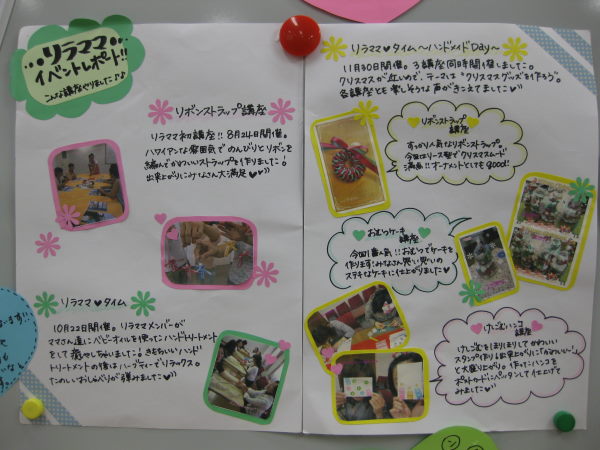 リラママ♥
イベントレポート!!
こんな講座やりました♪♪
リボンストラップ講座
リラママ初講座!! 8月24日開催。
ハワイアンな雰囲気で のんびりとリボンを
編んでかわいいストラップを作りました!
出来上がりにみなさん大満足♥♥
リラママ♥タイム
10月22日開催。リラママメンバーが
ママさん達にベビーオイルを使ったハンドトリートメント
をして癒やしちゃいました。きもちいいハンド
トリートメントの後は ハーブティーでリラックス。
たのしいおしゃべりが弾みました♥
リラママ♥タイム～ハンドメイドDay～
11月30日開催。3講座同時開催しました。
クリスマスが近いので、テーマは "クリスマスグッズを作ろう"。
各講座とも 楽しそうな声がきこえてました♥
リボンストラップ
講座
すっかり人気なリボンストラップ。
今回はリース型でクリスマスムード
満点!! オーナメントとしても good!
おむつケーキ
講座
今回1番人気!! おむつでケーキを
作ります! みなさん思い思いの
ステキなケーキに仕上がりました♥
けしごむハンコ
講座
けしごむをほりほりして かわいい
スタンプ作り! 出来上がりに「かわいい～!」
と大盛り上がり。作ったハンコを
ポストカードにペッタンして仕上げて
みました♥